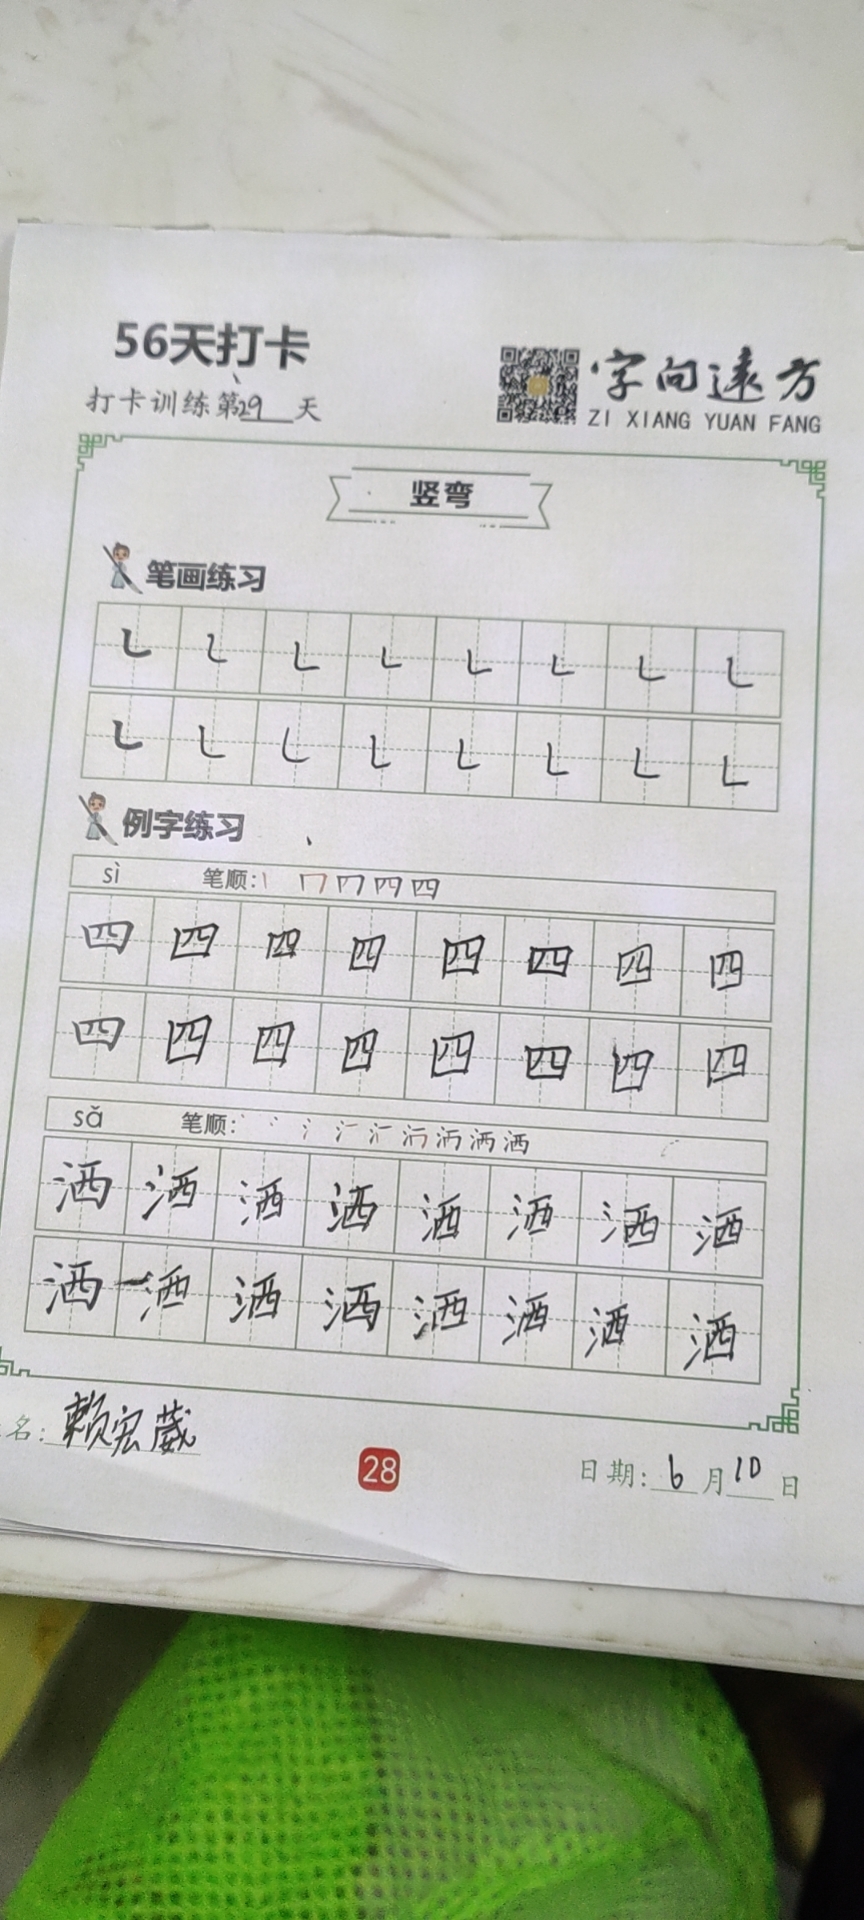 56天打卡
字向远方
ZI XIANG YUAN FANG
打卡训练第29天
竖弯
笔画练习
㇄ ㇄ ㇄ ㇄ ㇄ ㇄ ㇄ ㇄
㇄ ㇄ ㇄ ㇄ ㇄ ㇄ ㇄ ㇄
例字练习
sì 笔顺: 四
四 四 四 四 四 四 四 四
四 四 四 四 四 四 四 四
sǎ 笔顺: 洒
洒 洒 洒 洒 洒 洒 洒 洒
洒 洒 洒 洒 洒 洒 洒 洒
名: 赖宏葳
28
日期: 6月10日